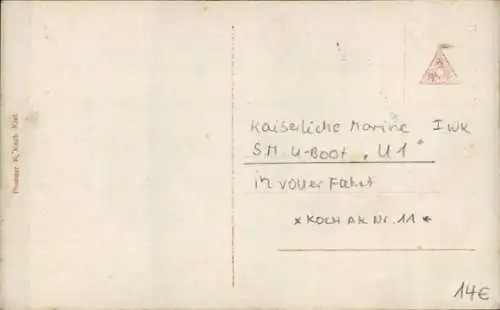 Kaiserliche Marine I WK
S.M. U-Boot „U1"
in voller Fahrt
* KOCH AK Nr. 11 *
14€
Photogr. R. Koch, Kiel.